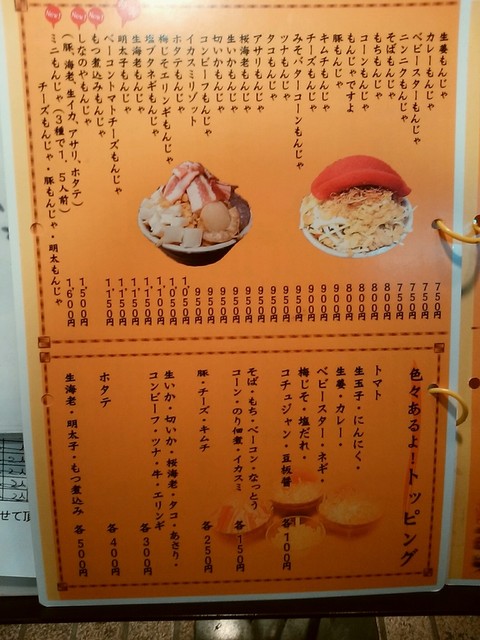 生姜もんじゃ 750円
カレーもんじゃ 750円
ベビースターもんじゃ 750円
ニンニクもんじゃ 750円
そばもんじゃ 800円
もちもんじゃ 800円
コーンもんじゃ 800円
もんじゃですよ 800円
豚もんじゃ 900円
キムチもんじゃ 900円
チーズもんじゃ 900円
みそバターコーンもんじゃ 900円
ツナもんじゃ 950円
タコもんじゃ 950円
アサリもんじゃ 950円
桜海老もんじゃ 950円
生いかもんじゃ 950円
切いかもんじゃ 950円
コンビーフもんじゃ 950円
イカスミリゾット 950円
ホタテもんじゃ 1,050円
梅じそエリンギもんじゃ 1,050円
塩ブタネギもんじゃ 1,100円
生海老もんじゃ 1,150円
明太子もんじゃ 1,150円
New! ベーコントマトチーズもんじゃ 1,150円
New! もつ煮込みもんじゃ 1,150円
しなのやもんじゃ 1,500円
(豚、海老、生イカ、アサリ、ホタテ)
New! ミニもんじゃ(3種で1.5人前) 1,600円
チーズもんじゃ・豚もんじゃ・明太もんじゃ
色々あるよ!トッピング
トマト
生玉子・にんにく・
生姜・カレー・
ベビースター・ネギ・
梅じそ・塩だれ・
コチュジャン・豆板醤 各100円
そば・もち・ベーコン・なっとう
コーン・のり佃煮・イカスミ 各150円
豚・チーズ・キムチ 各250円
生いか・切いか・桜海老・タコ・あさり・
コンビーフ・ツナ・牛・エリンギ 各300円
ホタテ 各400円
生海老・明太子・もつ煮込み 各500円
せて頂